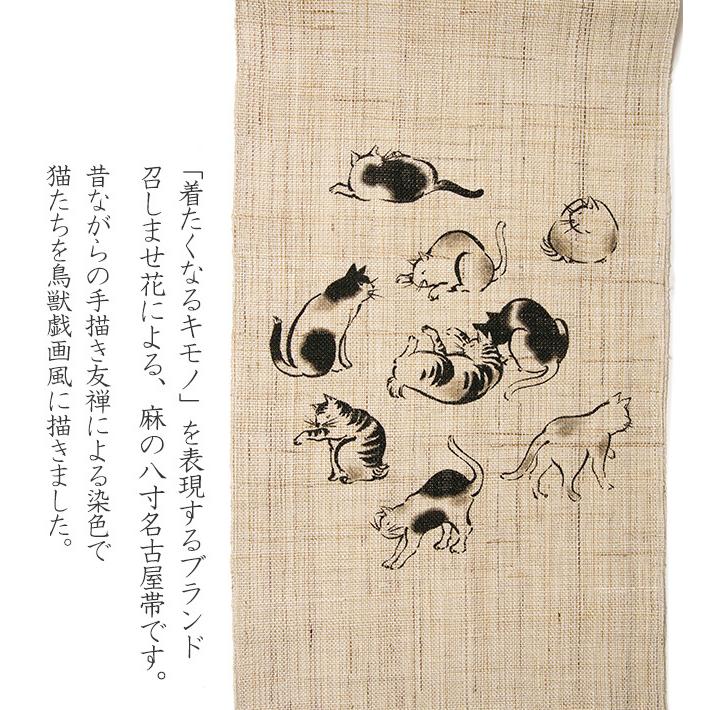 「着たくなるキモノ」を表現するブランド
召しませ花による、麻の八寸名古屋帯です。
昔ながらの手描き友禅による染色で
猫たちを鳥獣戯画風に描きました。